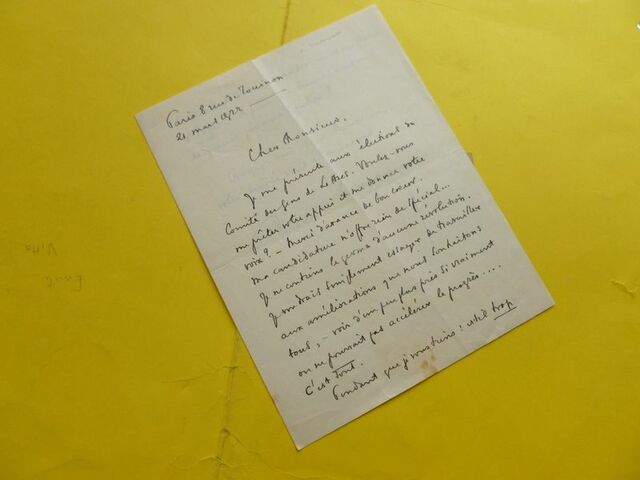 Paris 8 rue de Tournon
21 mars 1922
Cher Monsieur,
Je me présente aux élections du
Comité des Gens de Lettres. Voulez-vous
me prêter votre appui et me donner votre
voix ? – Merci d'avance de bon cœur.
Ma candidature n'offre rien de spécial...
Je ne contiens le germe d'aucune révolution.
Je voudrais simplement essayer de travailler
aux améliorations que nous souhaitons
tous, – voir d'un peu plus près si vraiment
on ne pourrait pas accélérer le progrès....
C'est tout.
Pendant que je vous tiens : est-il trop